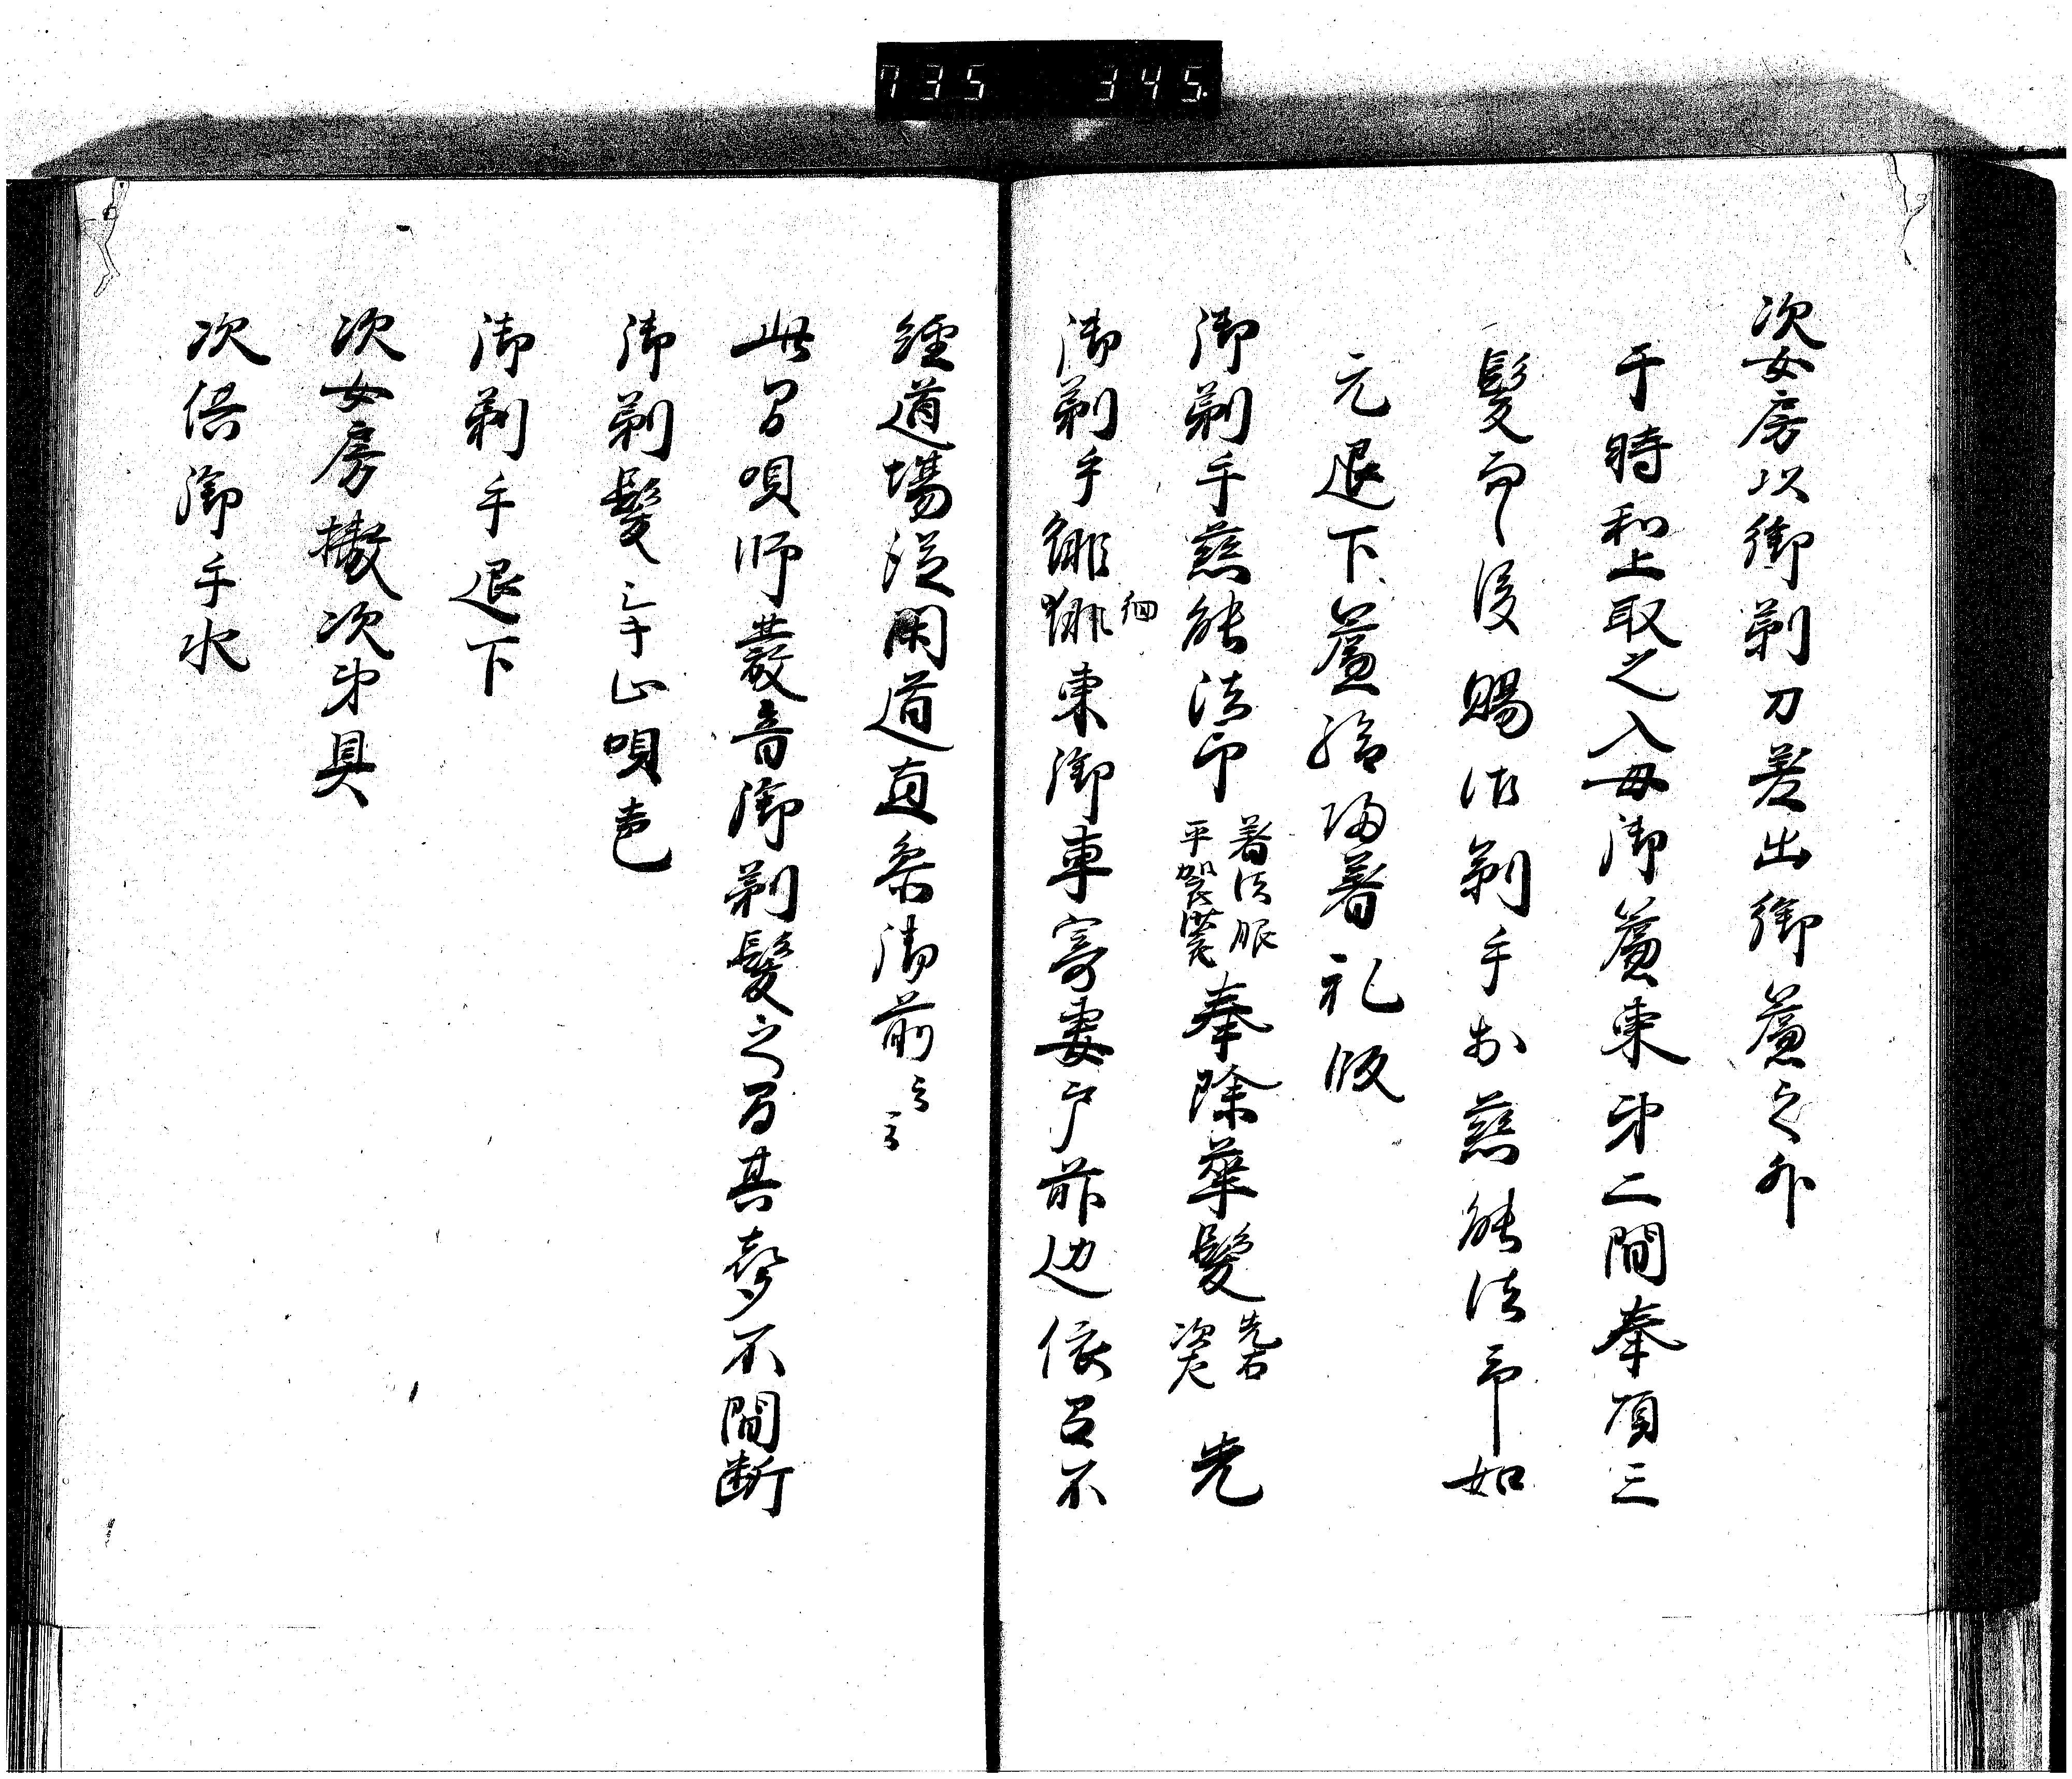 735 345
次女房以御剃刀差出御簾之外
于時和上取之入母御簾東第二間奉頂三
髪而後賜御剃手於慈能法印如
元退下簾給帰着礼版
御剃手慈能法印著法服平袈裟奉除華髪先右次左先
御剃手徘徊東御車寄妻戸前辺依召不
経道場従閑道直参御前云云
此間唄師發音御剃髪之間其声不間断
御剃髪訖于止唄声
御剃手退下
次女房撤次第具
次供御手水